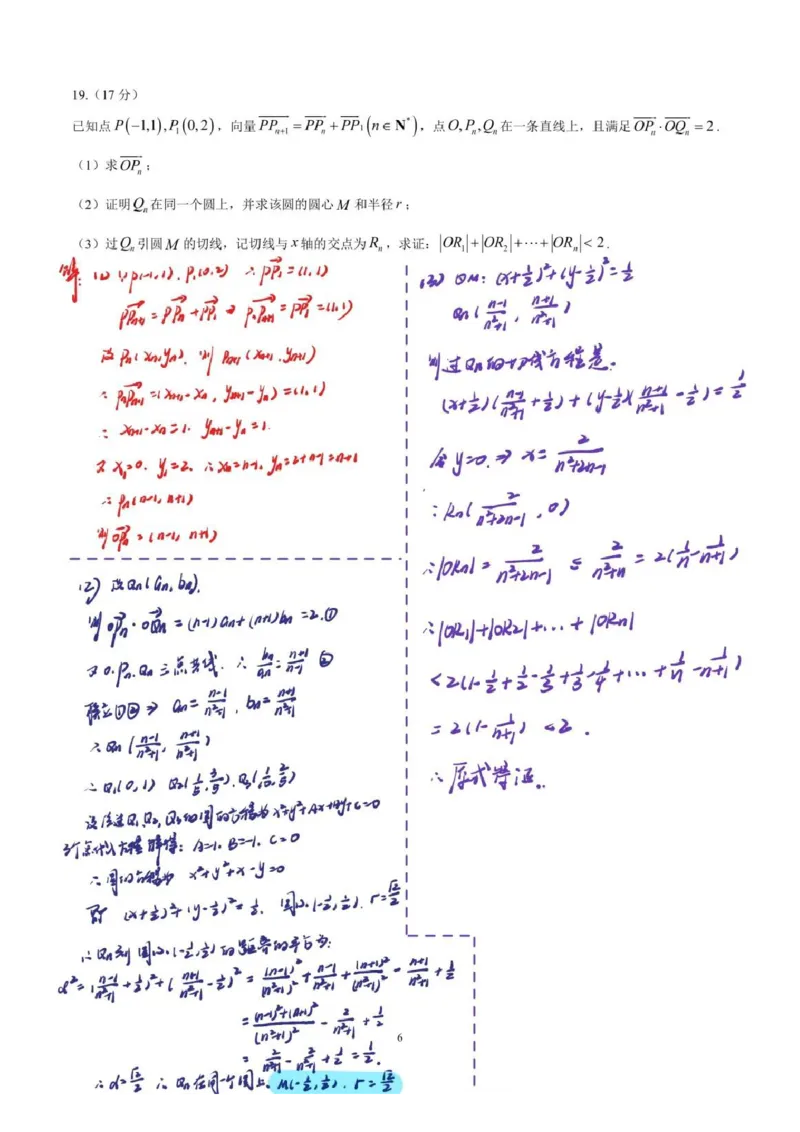 19.（17分）
已知点P(−1,1),P₁(0,2)，向量PPₙ₊₁=PPₙ+PP₁(n∈N*)，点O,Pₙ,Qₙ在一条直线上，且满足OPₙ·OQₙ=2.
（1）求OPₙ；
（2）证明Qₙ在同一个圆上，并求该圆的圆心M和半径r；
（3）过Qₙ引圆M的切线，记切线与x轴的交点为Rₙ，求证：|OR₁|+|OR₂|+⋯+|ORₙ|<2.
解：(1) ∵P(-1,1), P₁(0,2) ∴PP₁=(1,1)
PPₙ₊₁=PPₙ+PP₁ ⇒ PₙPₙ₊₁=PP₁=(1,1)
设Pₙ(xₙ,yₙ), 则Pₙ₊₁(xₙ₊₁,yₙ₊₁)
∴PₙPₙ₊₁=(xₙ₊₁-xₙ, yₙ₊₁-yₙ)=(1,1)
∴xₙ₊₁-xₙ=1. yₙ₊₁-yₙ=1.
又x₁=0. y₁=2. ∴xₙ=n-1, yₙ=2+n-1=n+1
∴Pₙ(n-1, n+1)
则OPₙ=(n-1, n+1)
(2) 设Qₙ(aₙ,bₙ).
则OPₙ·OQₙ=(n-1)aₙ+(n+1)bₙ=2.①
又O.Pₙ.Qₙ三点共线. ∴bₙ/aₙ=(n+1)/(n-1) ②
联立①② ⇒ aₙ=(n-1)/(n²+1), bₙ=(n+1)/(n²+1)
∴Qₙ((n-1)/(n²+1), (n+1)/(n²+1))
∴Q₁(0,1) Q₂(1/5,3/5). Q₃(1/5,2/5)
设经过Q₁,Q₂,Q₃的圆的方程为x²+y²+Ax+By+C=0
3个点代入方程解得：A=1. B=-1. C=0
∴圆的方程为 x²+y²+x-y=0
即 (x+1/2)²+(y-1/2)²=1/2. 圆心(-1/2,1/2). r=√2/2
∴Qₙ到圆心(-1/2,1/2)的距离的平方为:
d²=((n-1)/(n²+1)+1/2)²+((n+1)/(n²+1)-1/2)²=(n-1)²/(n²+1)²+(n-1)/(n²+1)+(n+1)²/(n²+1)²-(n+1)/(n²+1)+1/2
=((n-1)²+(n+1)²)/(n²+1)²-2/(n²+1)+1/2
=2/(n²+1)-2/(n²+1)+1/2=1/2.
∴d=√2/2 ∴Qₙ在同一个圆上. M(-1/2,1/2). r=√2/2
(3) ⊙M: (x+1/2)²+(y-1/2)²=1/2
Qₙ((n-1)/(n²+1), (n+1)/(n²+1))
则过Qₙ的切线方程是.
(x+1/2)((n-1)/(n²+1)+1/2)+(y-1/2)((n+1)/(n²+1)-1/2)=1/2
令y=0. ⇒ x=2/(n²+2n-1)
∴Rₙ(2/(n²+2n-1), 0)
∴|ORₙ|=2/(n²+2n-1) ≤ 2/(n²+n)=2(1/n-1/(n+1))
∴|OR₁|+|OR₂|+...+|ORₙ|
<2(1-1/2+1/2-1/3+1/3-1/4+...+1/n-1/(n+1))
=2(1-1/(n+1))<2.
∴原式得证..
6